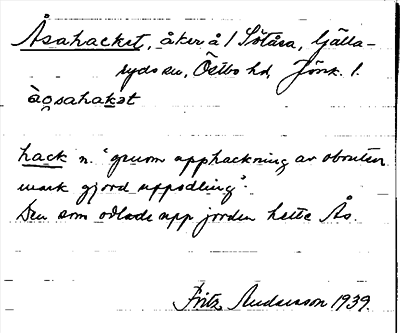 Åsahacket, åker å 1 Sötåsa, Gälla-
ryds sn, Östbo hd, Jönk. l.
ào̯sahakət
hack n. "genom upphackning av obruten
mark gjord uppodling".
Den som odlade upp jorden hette Ås.
Fritz Andersson 1939.